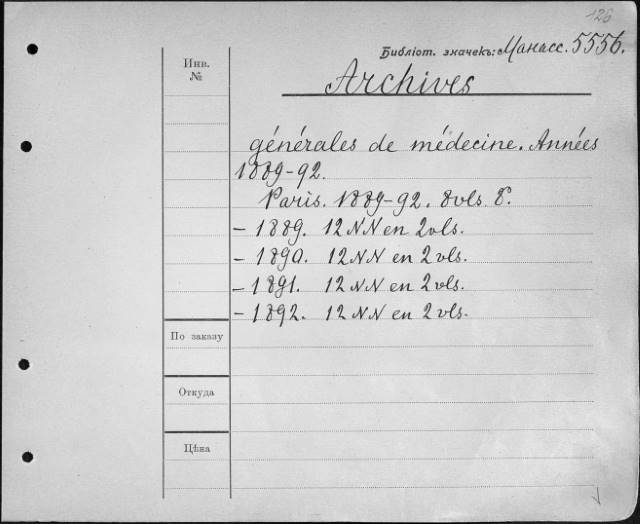 126
Библіот. значекъ: Манасс. 5556.
Инв.
№
Archives
générales de médecine. Années
1889-92.
Paris. 1889-92. 8vls. 8.
- 1889. 12 NN en 2 vls.
- 1890. 12 NN en 2 vls.
- 1891. 12 NN en 2 vls.
- 1892. 12 NN en 2 vls.
По заказу
Откуда
Цѣна